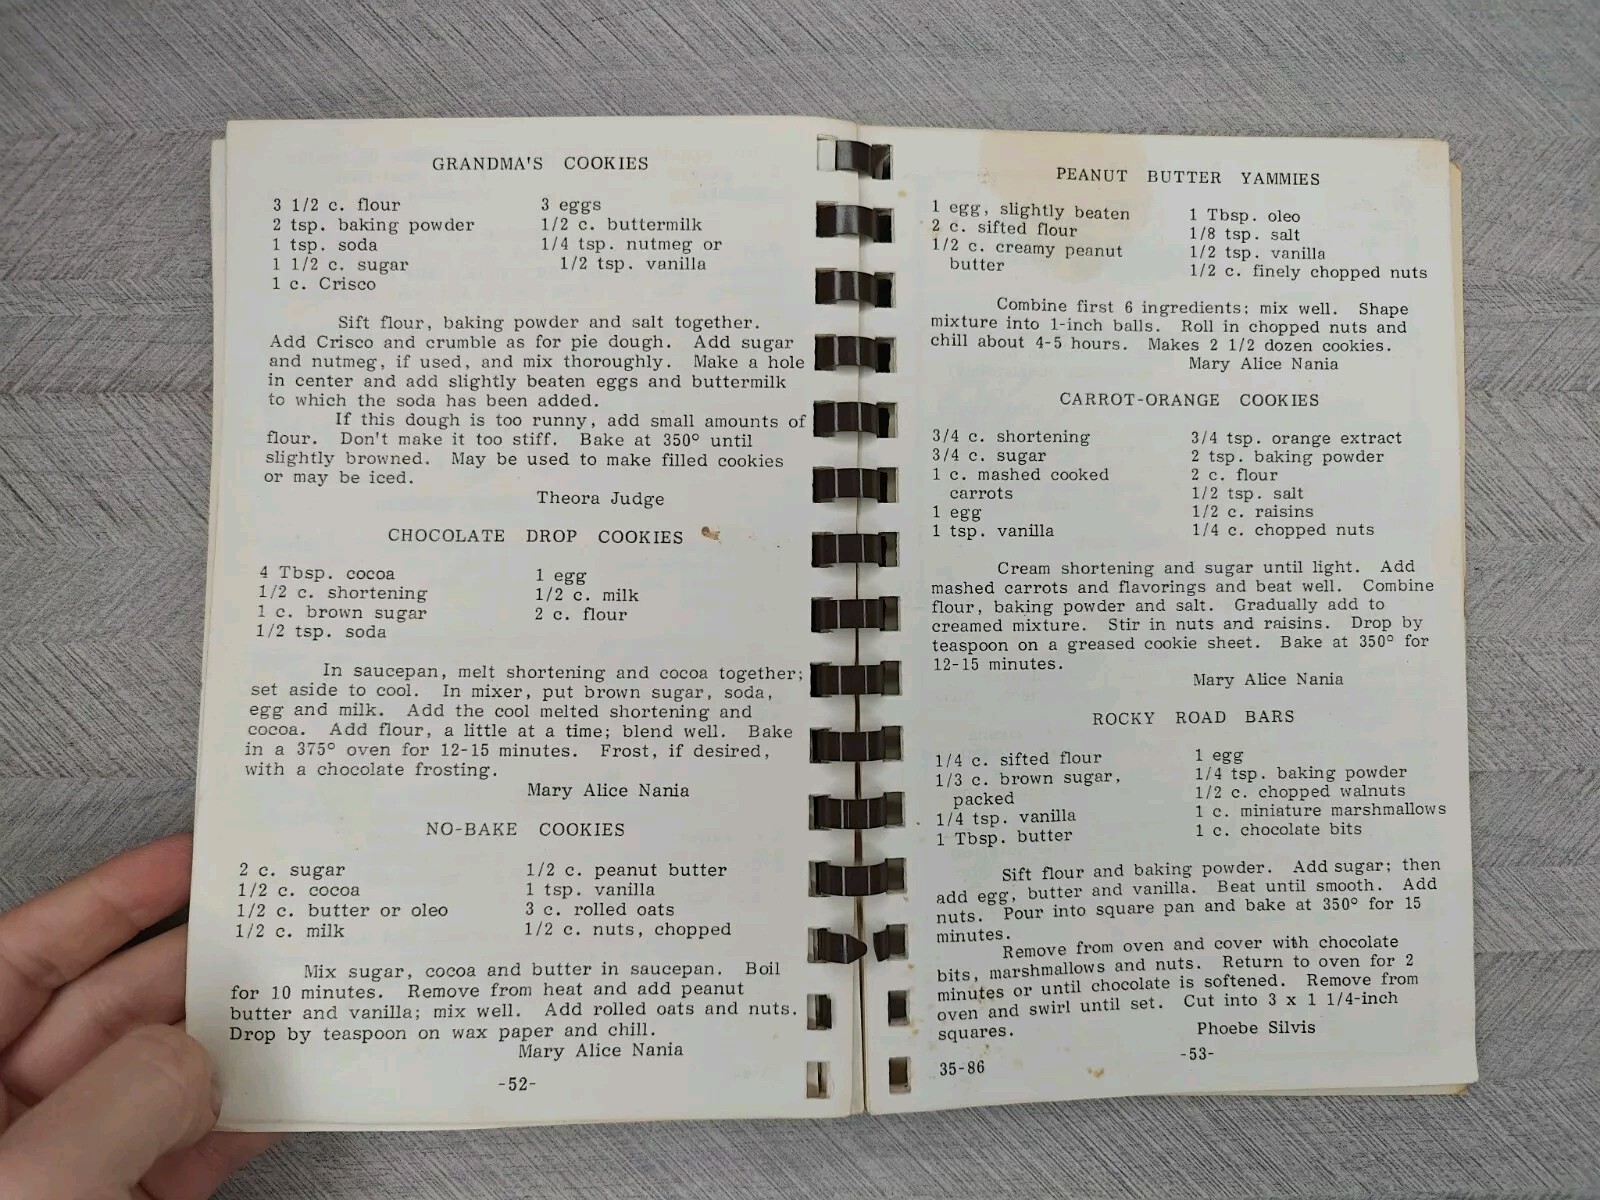 GRANDMA'S COOKIES
3 1/2 c. flour
2 tsp. baking powder
1 tsp. soda
1 1/2 c. sugar
1 c. Crisco
3 eggs
1/2 c. buttermilk
1/4 tsp. nutmeg or
1/2 tsp. vanilla
Sift flour, baking powder and salt together.
Add Crisco and crumble as for pie dough. Add sugar
and nutmeg, if used, and mix thoroughly. Make a hole
in center and add slightly beaten eggs and buttermilk
to which the soda has been added.
If this dough is too runny, add small amounts of
flour. Don't make it too stiff. Bake at 350° until
slightly browned. May be used to make filled cookies
or may be iced.
Theora Judge
CHOCOLATE DROP COOKIES
4 Tbsp. cocoa
1/2 c. shortening
1 c. brown sugar
1/2 tsp. soda
1 egg
1/2 c. milk
2 c. flour
In saucepan, melt shortening and cocoa together;
set aside to cool. In mixer, put brown sugar, soda,
egg and milk. Add the cool melted shortening and
cocoa. Add flour, a little at a time; blend well. Bake
in a 375° oven for 12-15 minutes. Frost, if desired,
with a chocolate frosting.
Mary Alice Nania
NO-BAKE COOKIES
2 c. sugar
1/2 c. cocoa
1/2 c. butter or oleo
1/2 c. milk
1/2 c. peanut butter
1 tsp. vanilla
3 c. rolled oats
1/2 c. nuts, chopped
Mix sugar, cocoa and butter in saucepan. Boil
for 10 minutes. Remove from heat and add peanut
butter and vanilla; mix well. Add rolled oats and nuts.
Drop by teaspoon on wax paper and chill.
Mary Alice Nania
-52-
PEANUT BUTTER YAMMIES
1 egg, slightly beaten
2 c. sifted flour
1/2 c. creamy peanut
butter
1 Tbsp. oleo
1/8 tsp. salt
1/2 tsp. vanilla
1/2 c. finely chopped nuts
Combine first 6 ingredients; mix well. Shape
mixture into 1-inch balls. Roll in chopped nuts and
chill about 4-5 hours. Makes 2 1/2 dozen cookies.
Mary Alice Nania
CARROT-ORANGE COOKIES
3/4 c. shortening
3/4 c. sugar
1 c. mashed cooked
carrots
1 egg
1 tsp. vanilla
3/4 tsp. orange extract
2 tsp. baking powder
2 c. flour
1/2 tsp. salt
1/2 c. raisins
1/4 c. chopped nuts
Cream shortening and sugar until light. Add
mashed carrots and flavorings and beat well. Combine
flour, baking powder and salt. Gradually add to
creamed mixture. Stir in nuts and raisins. Drop by
teaspoon on a greased cookie sheet. Bake at 350° for
12-15 minutes.
Mary Alice Nania
ROCKY ROAD BARS
1/4 c. sifted flour
1/3 c. brown sugar,
packed
1/4 tsp. vanilla
1 Tbsp. butter
1 egg
1/4 tsp. baking powder
1/2 c. chopped walnuts
1 c. miniature marshmallows
1 c. chocolate bits
Sift flour and baking powder. Add sugar; then
add egg, butter and vanilla. Beat until smooth. Add
nuts. Pour into square pan and bake at 350° for 15
minutes.
Remove from oven and cover with chocolate
bits, marshmallows and nuts. Return to oven for 2
minutes or until chocolate is softened. Remove from
oven and swirl until set. Cut into 3 x 1 1/4-inch
squares.
Phoebe Silvis
-53-
35-86